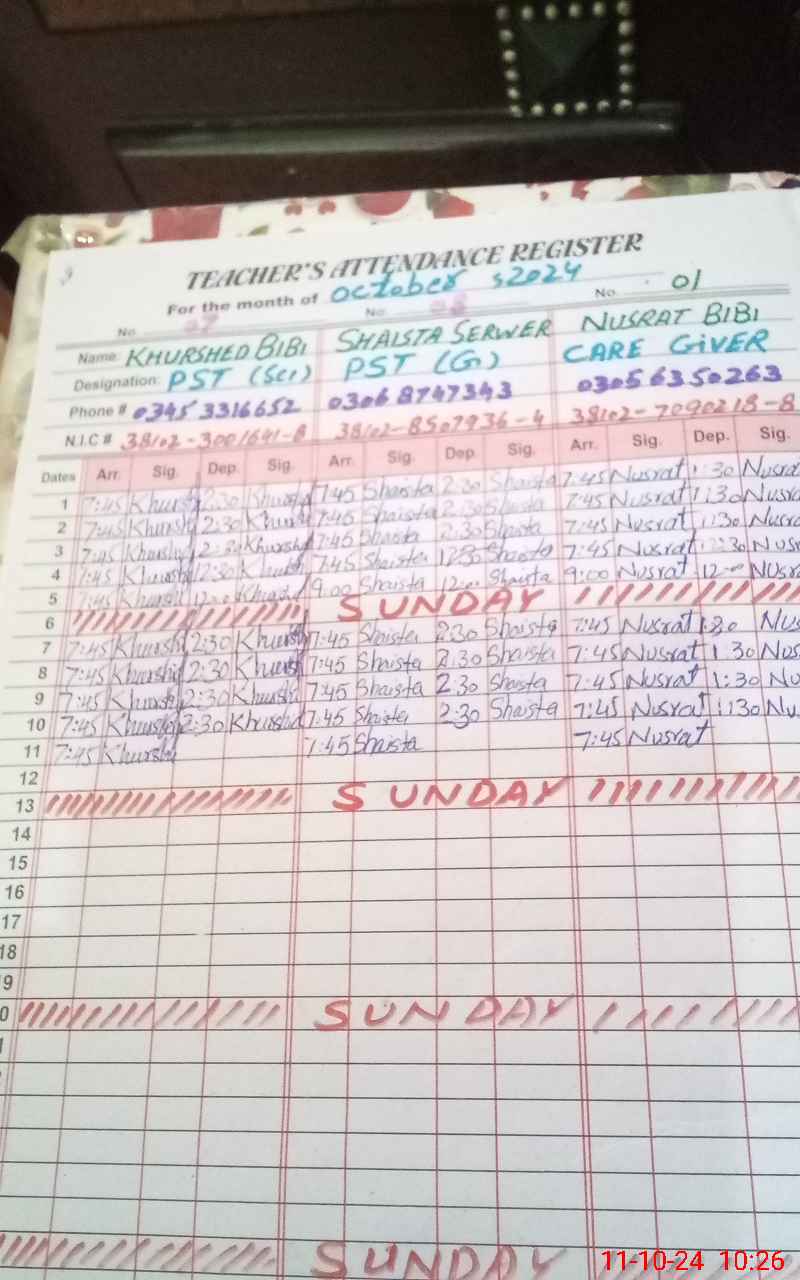 TEACHER'S ATTENDANCE REGISTER
For the month of October s2024
No. 07 No. 08 No. 01
Name: KHURSHED BIBI SHAISTA SERWER NUSRAT BIBI
Designation: PST (Sci) PST (G) CARE GIVER
Phone # 0345 3316652 0306 8747343 0305 6350263
N.I.C # 38102-3001641-8 38102-8507936-4 38102-7090218-8
Dates Arr. Sig. Dep. Sig. Arr. Sig. Dep. Sig. Arr. Sig. Dep. Sig.
1 7:45 Khurshid 2:30 Khurshid 7:45 Shaista 2:30 Shaista 7:45 Nusrat 1:30 Nusra
2 7:45 Khurshid 2:30 Khurshid 7:45 Shaista 2:30 Shaista 7:45 Nusrat 1:30 Nusra
3 7:45 Khurshid 2:30 Khurshid 7:45 Shaista 2:30 Shaista 7:45 Nusrat 1:30 Nusra
4 7:45 Khurshid 12:30 Khurshid 7:45 Shaista 12:30 Shaista 7:45 Nusrat 12:30 Nus
5 Khurshid 12:00 Khurshid 9:00 Shaista 12:00 Shaista 9:00 Nusrat 12:00 Nusra
6 SUNDAY
7 7:45 Khurshid 2:30 Khurshid 7:45 Shaista 2:30 Shaista 7:45 Nusrat 1:30 Nus
8 7:45 Khurshid 2:30 Khurshid 7:45 Shaista 2:30 Shaista 7:45 Nusrat 1:30 Nus
9 7:45 Khurshid 2:30 Khurshid 7:45 Shaista 2:30 Shaista 7:45 Nusrat 1:30 Nu
10 7:45 Khurshid 2:30 Khurshid 7:45 Shaista 2:30 Shaista 7:45 Nusrat 1:30 Nu
11 7:45 Khurshid 7:45 Shaista 7:45 Nusrat
12
13 SUNDAY
14
15
16
17
18
9
0 SUNDAY
1
SUNDAY
11-10-24 10:26